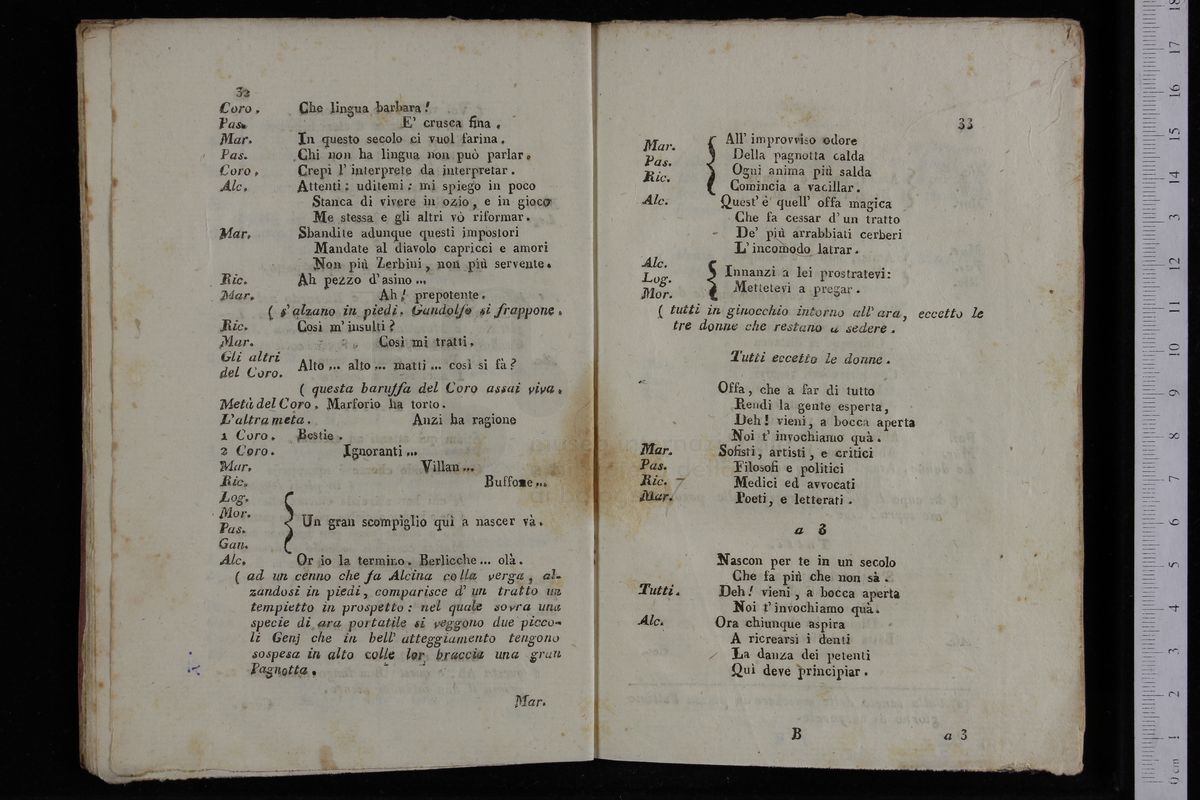 32
Coro. Che lingua barbara!
Pas. E' crusca fina.
Mar. In questo secolo ci vuol farina.
Pas. Chi non ha lingua non può parlar.
Coro. Crepi l'interprete da interpretar.
Alc. Attenti; uditemi: mi spiego in poco
Stanca di vivere in ozio, e in gioco
Me stessa e gli altri vò riformar.
Mar. Sbandite adunque questi impostori
Mandate al diavolo capricci e amori
Non più Zerbini, non più servente.
Ric. Ah pezzo d'asino ...
Mar. Ah! prepotente.
( s'alzano in piedi. Gandolfo si frappone.
Ric. Così m'insulti?
Mar. Così mi tratti.
Gli altri
del Coro. Alto ... alto ... matti ... così si fà?
( questa baruffa del Coro assai viva.
Metà del Coro. Marforio ha torto.
L'altra meta. Anzi ha ragione
1 Coro. Bestie.
2 Coro. Ignoranti ...
Mar. Villan ...
Ric. Buffone ...
Log.
Mor.
Pas.
Gan. Un gran scompiglio quì a nascer và.
Alc. Or io la termino. Berlicche... olà.
( ad un cenno che fa Alcina colla verga, al-
zandosi in piedi, comparisce d'un tratto un
tempietto in prospetto: nel quale sovra una
specie di ara portatile si veggono due picco-
li Genj che in bell' atteggiamento tengono
sospesa in alto colle lor braccia una gran
Pagnotta.
Mar.
33
Mar.
Pas.
Ric.
All' improvviso odore
Della pagnotta calda
Ogni anima più salda
Comincia a vacillar.
Alc. Quest' è quell' offa magica
Che fa cessar d'un tratto
De' più arrabbiati cerberi
L'incomodo latrar.
Alc.
Log.
Mor.
Innanzi a lei prostratevi:
Mettetevi a pregar.
( tutti in ginocchio intorno all' ara, eccetto le
tre donne che restano a sedere.
Tutti eccetto le donne.
Offa, che a far di tutto
Rendi la gente esperta,
Deh! vieni, a bocca aperta
Noi t'invochiamo quà.
Mar. Sofisti, artisti, e critici
Pas. Filosofi e politici
Ric. Medici ed avvocati
Mar. Poeti, e letterati.
a 3
Nascon per te in un secolo
Che fa più che non sà.
Tutti. Deh! vieni, a bocca aperta
Noi t'invochiamo quà.
Alc. Ora chiunque aspira
A ricrearsi i denti
La danza dei petenti
Quì deve principiar.
B a 3